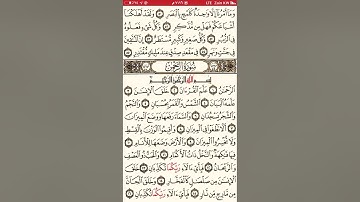 وَمَا أَمْرُنَا إِلَّا وَاحِدَةٌ كَلَمْحٍ بِالْبَصَرِ ۝ وَلَقَدْ أَهْلَكْنَا
أَشْيَاعَكُمْ فَهَلْ مِنْ مُدَّكِرٍ ۝ وَكُلُّ شَيْءٍ فَعَلُوهُ
فِي الزُّبُرِ ۝ وَكُلُّ صَغِيرٍ وَكَبِيرٍ مُسْتَطَرٌ ۝ إِنَّ الْمُتَّقِينَ
فِي جَنَّاتٍ وَنَهَرٍ ۝ فِي مَقْعَدِ صِدْقٍ عِنْدَ مَلِيكٍ مُقْتَدِرٍ ۝
سُورَةُ الرَّحْمَٰنِ
بِسْمِ اللَّهِ الرَّحْمَٰنِ الرَّحِيمِ
الرَّحْمَٰنُ ۝ عَلَّمَ الْقُرْآنَ ۝ خَلَقَ الْإِنْسَانَ ۝
عَلَّمَهُ الْبَيَانَ ۝ الشَّمْسُ وَالْقَمَرُ بِحُسْبَانٍ ۝ وَالنَّجْمُ
وَالشَّجَرُ يَسْجُدَانِ ۝ وَالسَّمَاءَ رَفَعَهَا وَوَضَعَ الْمِيزَانَ
۝ أَلَّا تَطْغَوْا فِي الْمِيزَانِ ۝ وَأَقِيمُوا الْوَزْنَ بِالْقِسْطِ
وَلَا تُخْسِرُوا الْمِيزَانَ ۝ وَالْأَرْضَ وَضَعَهَا لِلْأَنَامِ ۝
فِيهَا فَاكِهَةٌ وَالنَّخْلُ ذَاتُ الْأَكْمَامِ ۝ وَالْحَبُّ ذُو الْعَصْفِ
وَالرَّيْحَانُ ۝ فَبِأَيِّ آلَاءِ رَبِّكُمَا تُكَذِّبَانِ ۝ خَلَقَ
الْإِنْسَانَ مِنْ صَلْصَالٍ كَالْفَخَّارِ ۝ وَخَلَقَ الْجَانَّ
مِنْ مَارِجٍ مِنْ نَارٍ ۝ فَبِأَيِّ آلَاءِ رَبِّكُمَا تُكَذِّبَانِ ۝